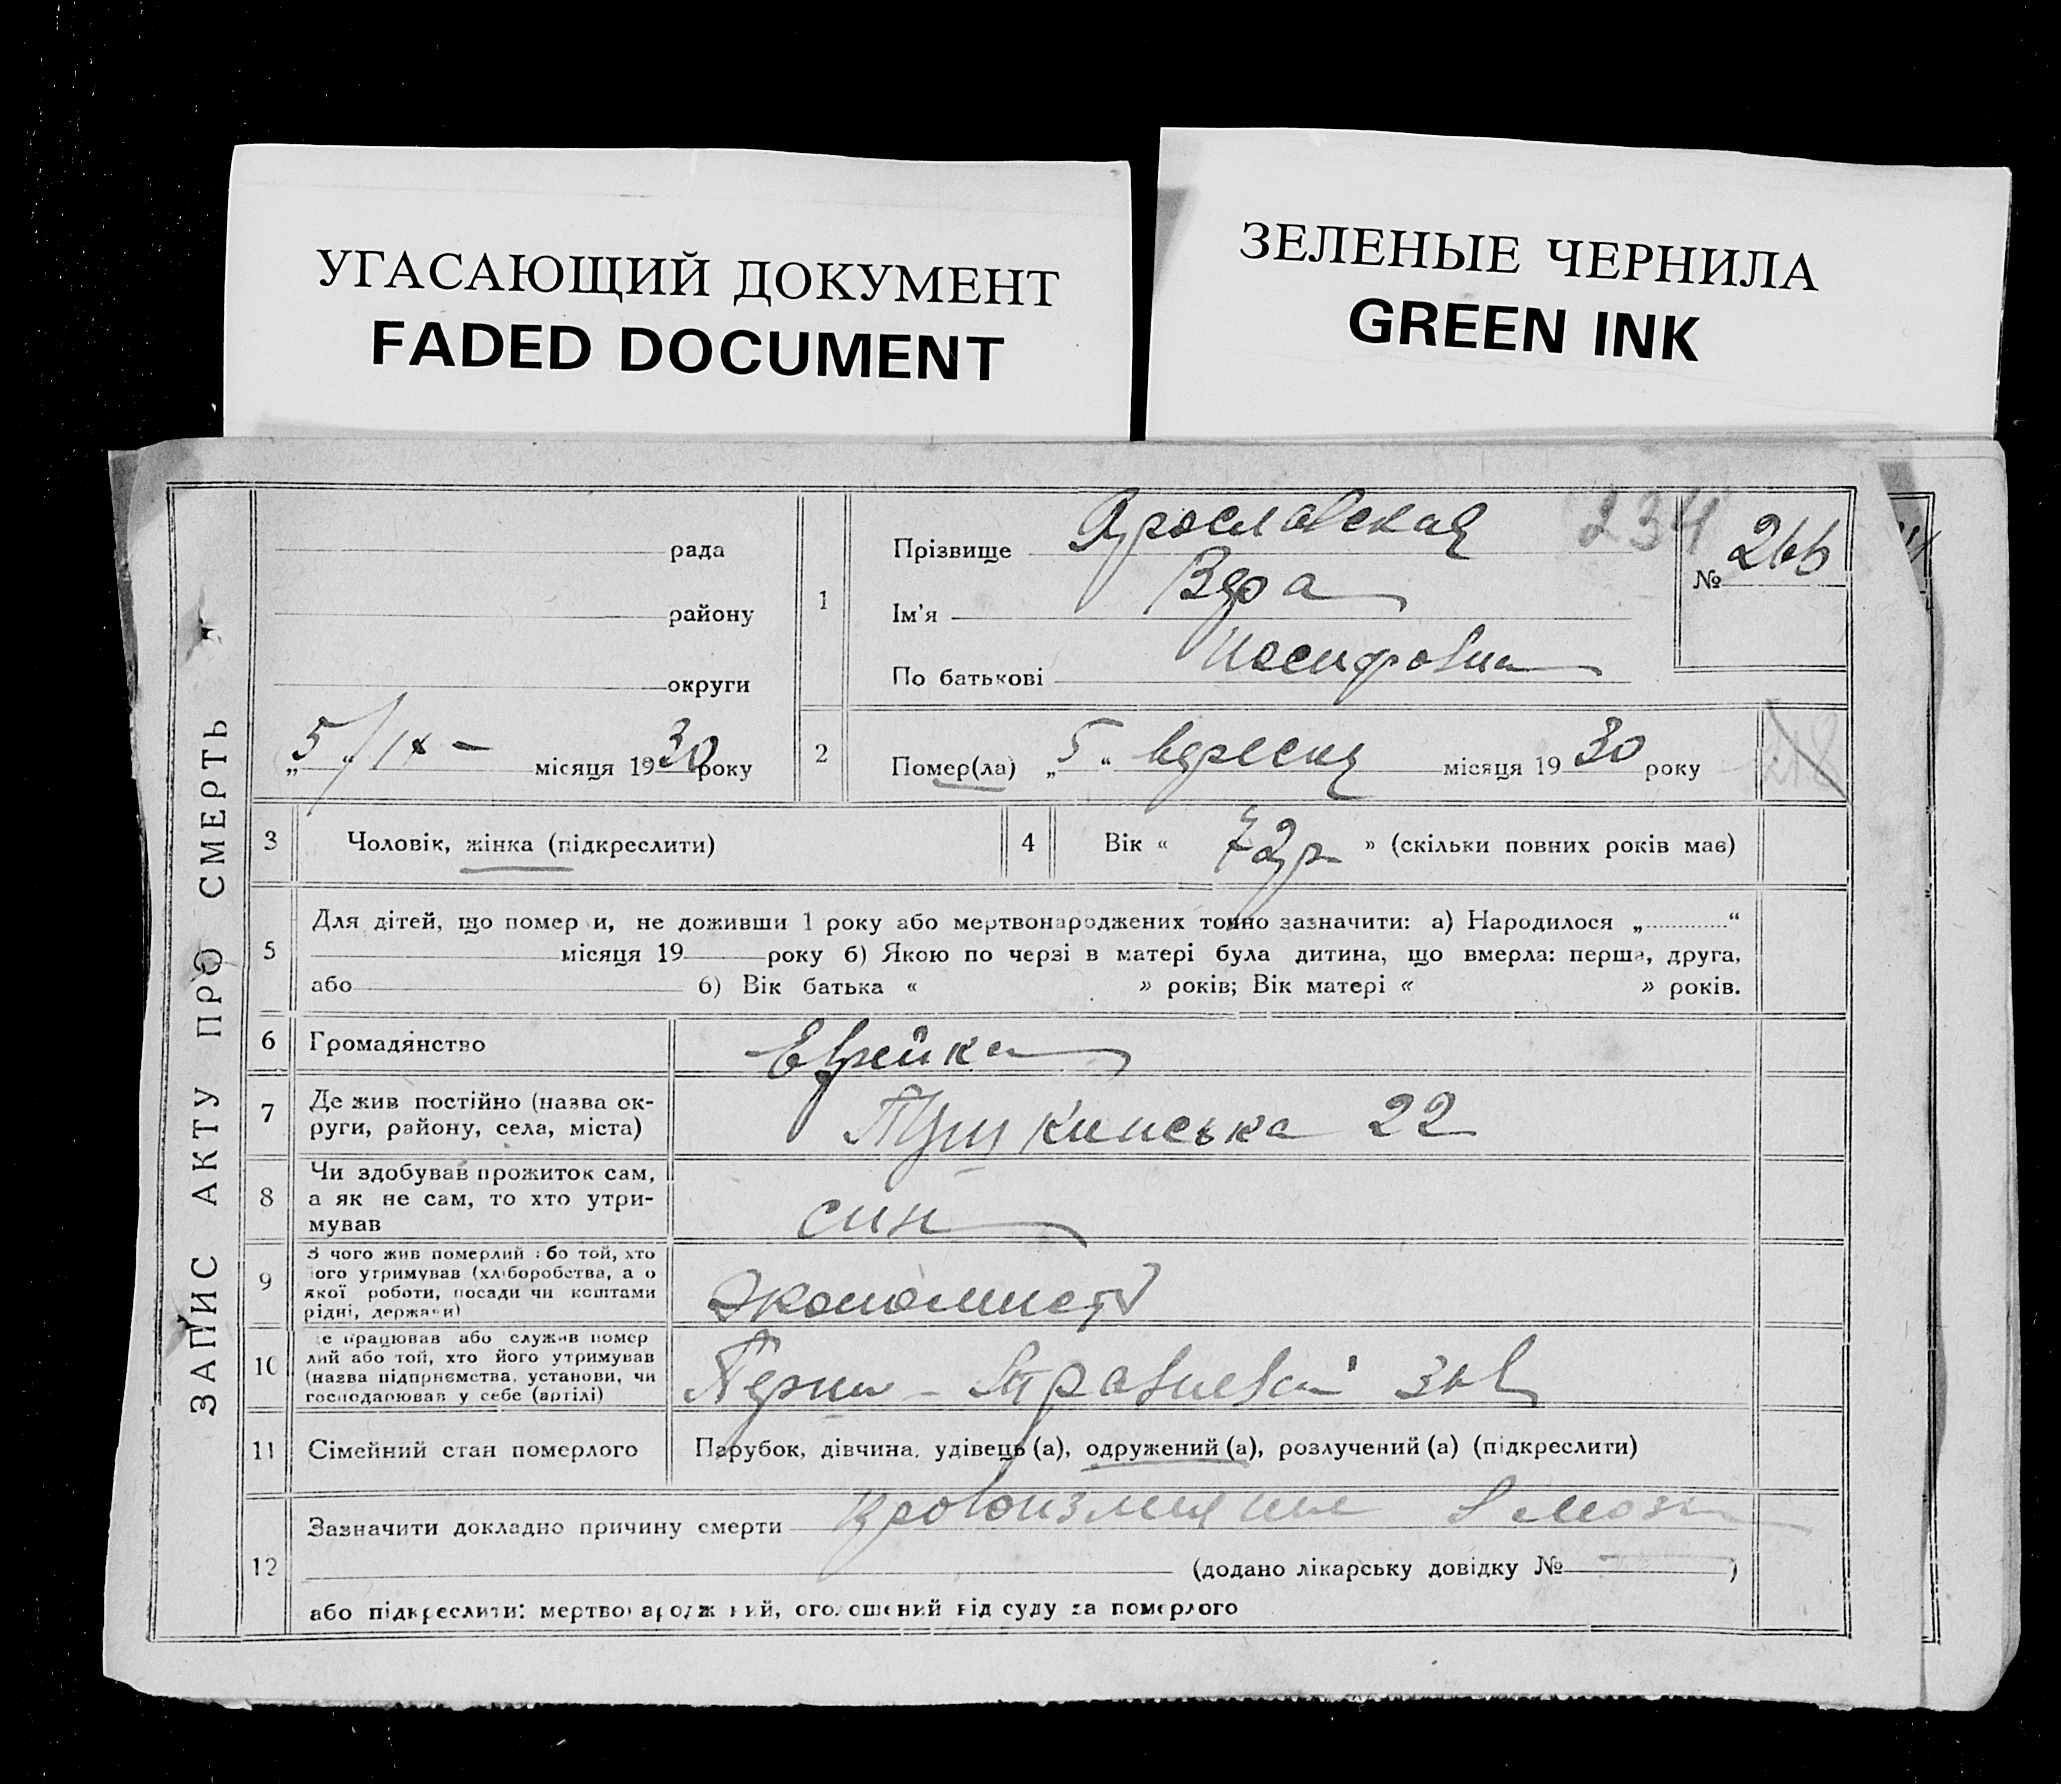 УГАСАЮЩИЙ ДОКУМЕНТ
FADED DOCUMENT
ЗЕЛЕНЫЕ ЧЕРНИЛА
GREEN INK
ЗАПИС АКТУ ПРО СМЕРТЬ
рада
району
округи
„5“ IX – місяця 1930 року
1
Прізвище Ярославская
Ім'я Вера
По батькові Иосифовна
234
№ 266
2
Помер(ла) „5“ вересня місяця 1930 року
218
3
Чоловік, жінка (підкреслити)
4
Вік « 72 р » (скільки повних років має)
5
Для дітей, що померли, не доживши 1 року або мертвонароджених точно зазначити: а) Народилося „ “
місяця 19 року б) Якою по черзі в матері була дитина, що вмерла: перша, друга,
або б) Вік батька « » років; Вік матері « » років.
6
Громадянство
Еврейка
7
Де жив постійно (назва ок-
руги, району, села, міста)
Пушкинська 22
8
Чи здобував прожиток сам,
а як не сам, то хто утри-
мував
син
9
З чого жив померлий або той, хто
його утримував (хліборобства, а о
якої роботи, посади чи коштами
рідні, держави)
Экономист
10
Де працював або служив помер
лий або той, хто його утримував
(назва підприємства, установи, чи
господарював у себе (артілі)
11
Сімейний стан померлого
Парубок, дівчина, удівець (а), одружений (а), розлучений (а) (підкреслити)
12
Зазначити докладно причину смерти кровоизлияние в мозг
(додано лікарську довідку № )
або підкреслити: мертвонароджений, оголошений від суду за померлого